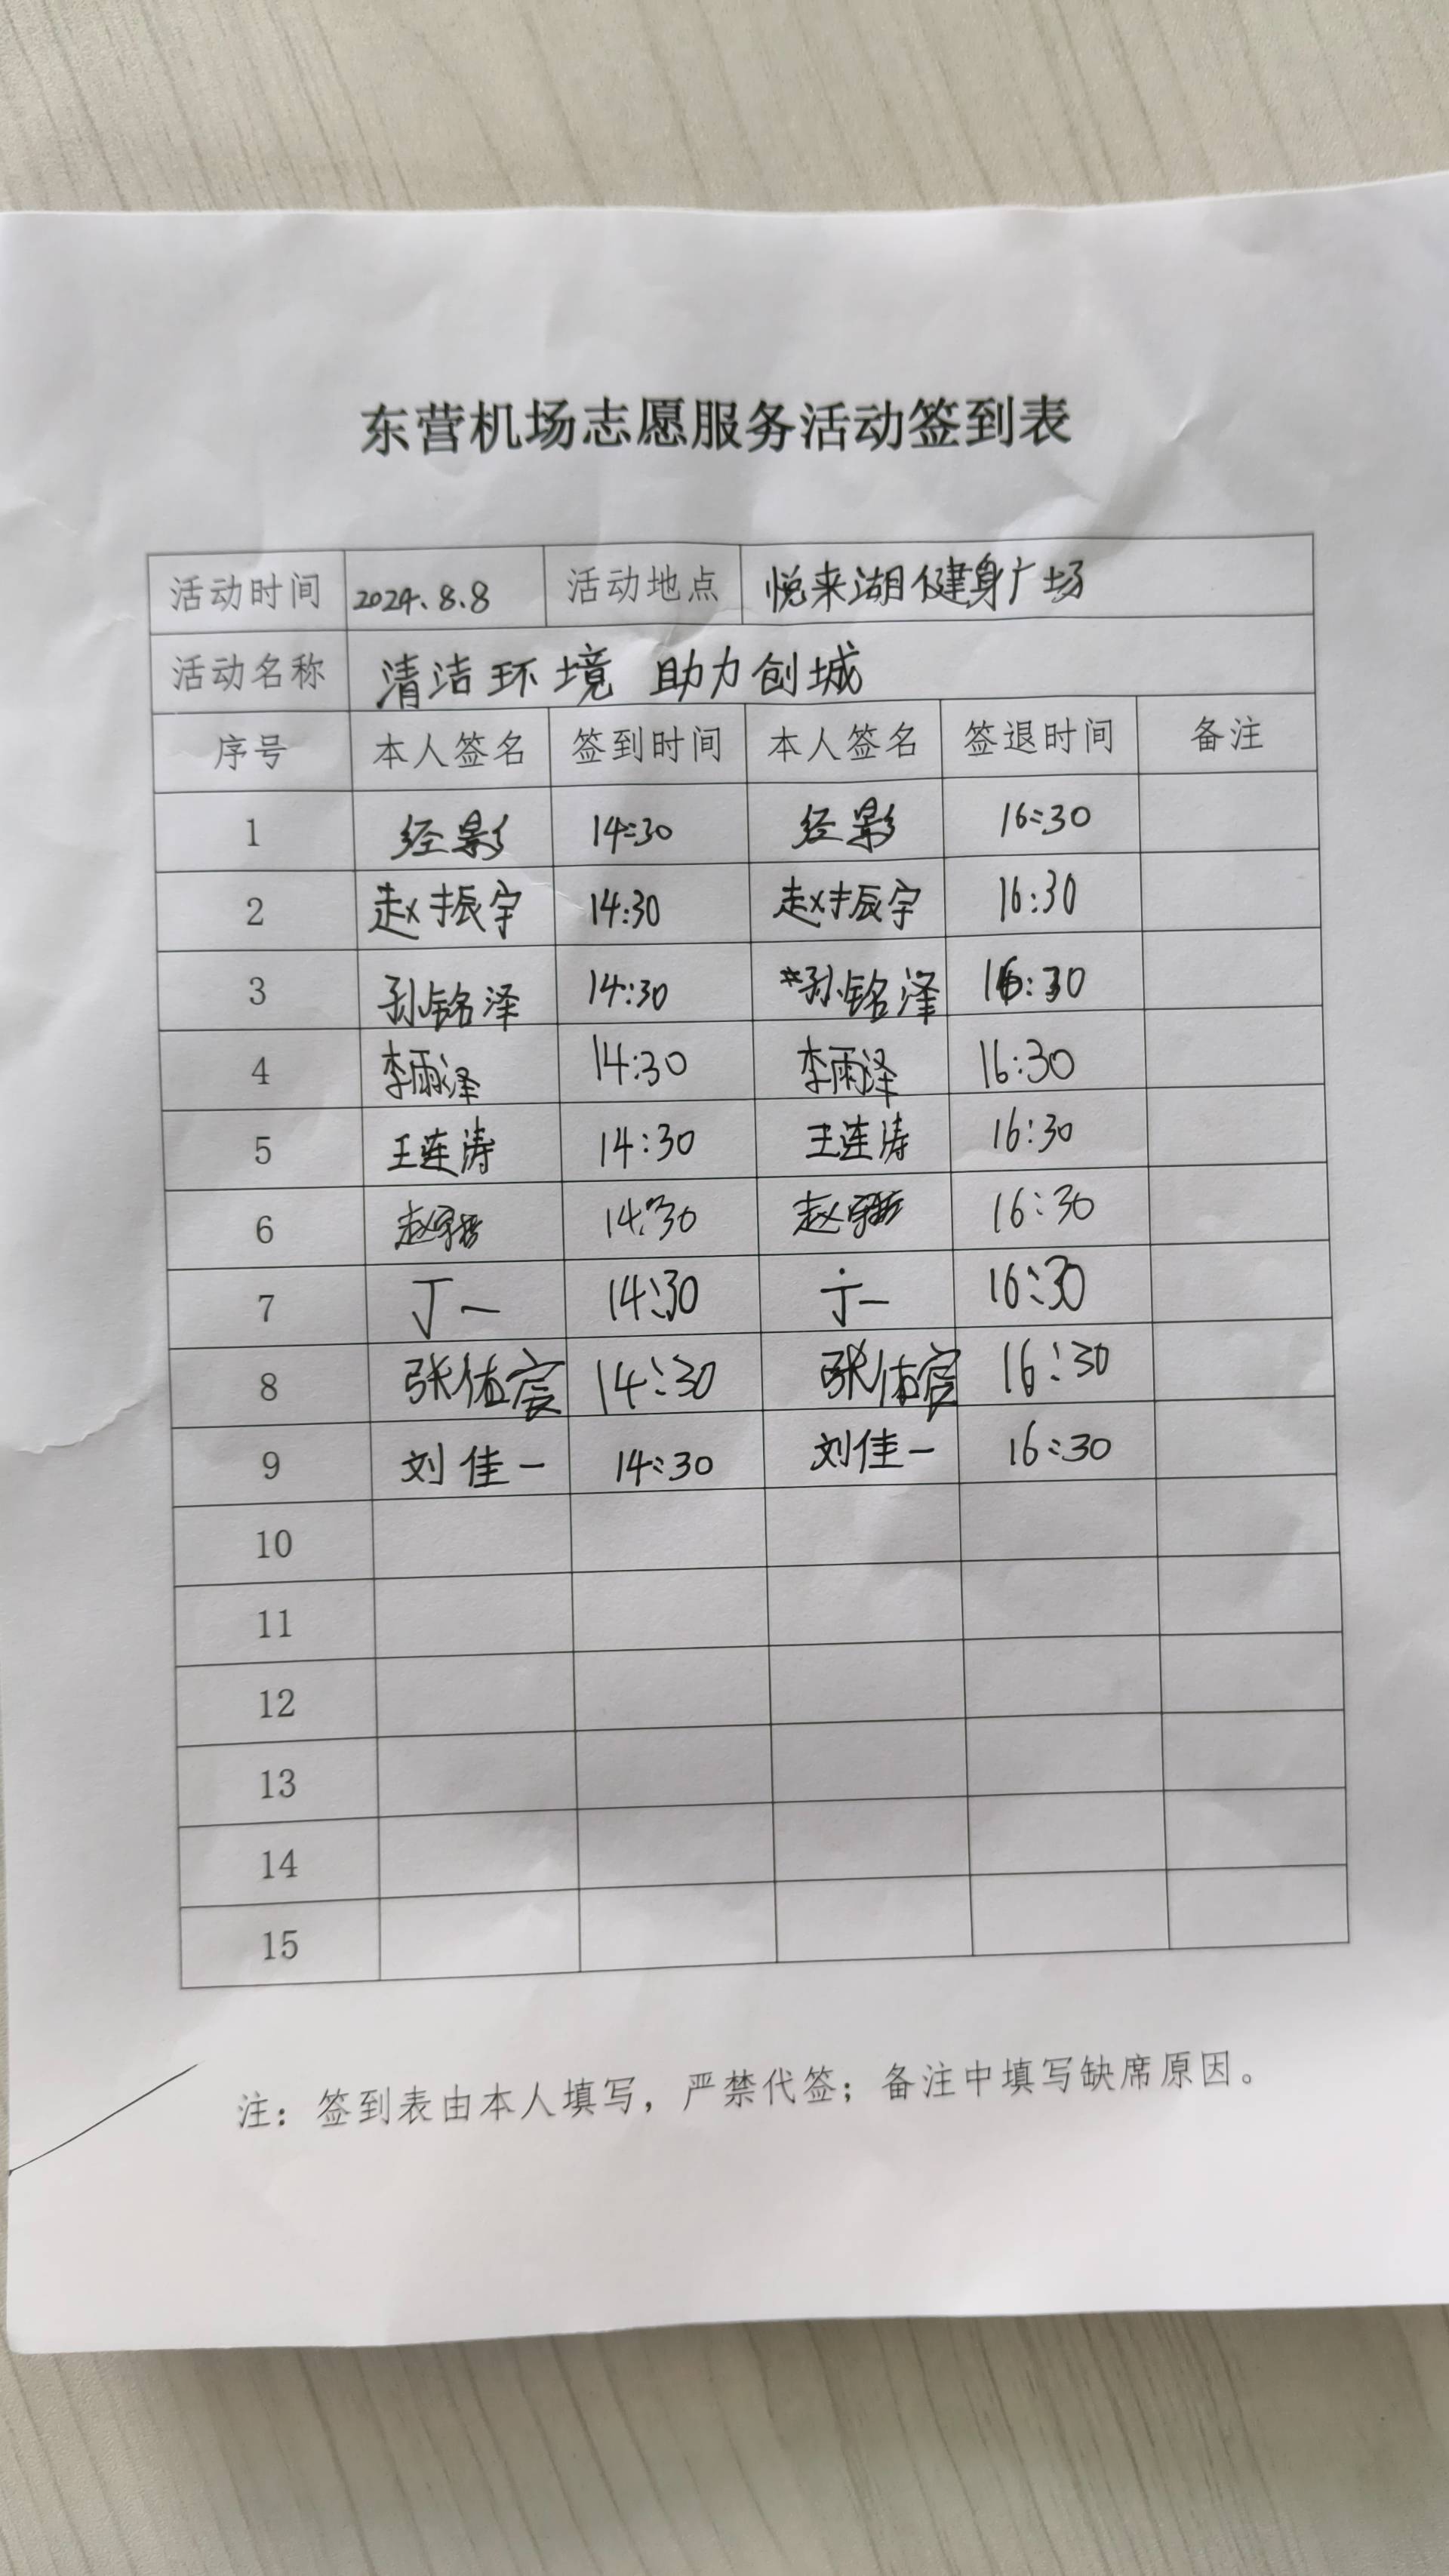 东营机场志愿服务活动签到表
活动时间 2024.8.8 活动地点 悦来湖健身广场
活动名称 清洁环境 助力创城
序号 本人签名 签到时间 本人签名 签退时间 备注
1 经影 14:30 经影 16:30
2 赵振宇 14:30 赵振宇 16:30
3 孙铭泽 14:30 孙铭泽 16:30
4 李雨泽 14:30 李雨泽 16:30
5 王连涛 14:30 王连涛 16:30
6 赵 14:30 赵 16:30
7 丁一 14:30 丁一 16:30
8 张佑宸 14:30 张佑宸 16:30
9 刘佳一 14:30 刘佳一 16:30
10
11
12
13
14
15
注：签到表由本人填写，严禁代签；备注中填写缺席原因。